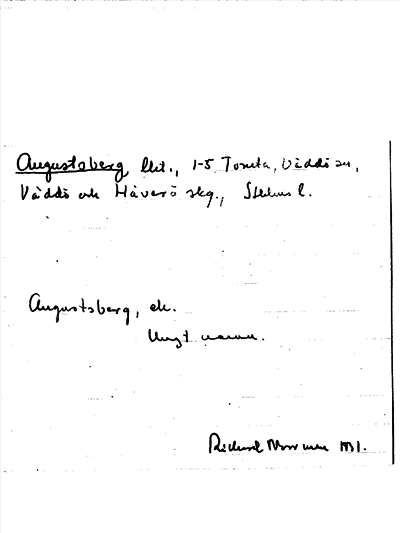 Augustsberg, lht., 1-5 Tomta, Väddö sn,
Väddö och Häverö skg., Sthlms l.
Augustsberg, ek.
Ungt namn.
Richard 1931.